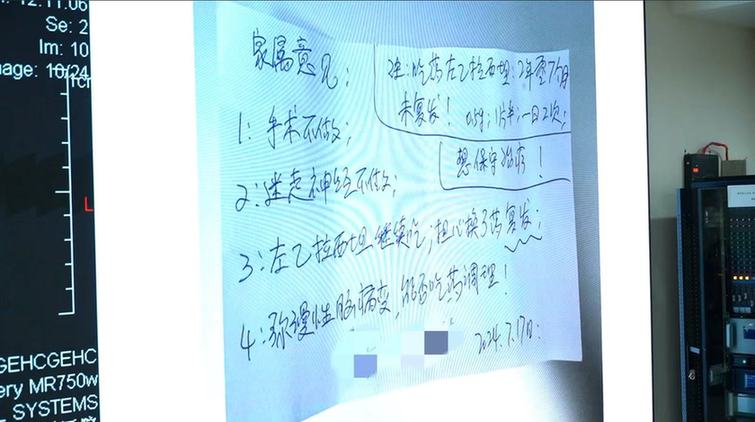 12:11:06
Se: 2
Im: 10
家属意见:
1: 手术不做;
2: 迷走神经不做;
3: 左乙拉西坦继续吃; 担心换了药复发;
4: 弥漫性脑病变, 能否吃药调理!
2024.7.17日:
注: 吃药左乙拉西坦: 2年至7个月
未复发! 0.5g; 1片半; 一日2次;
想保守治疗!
GEHCGEHC
ery MR750w
SYSTEMS